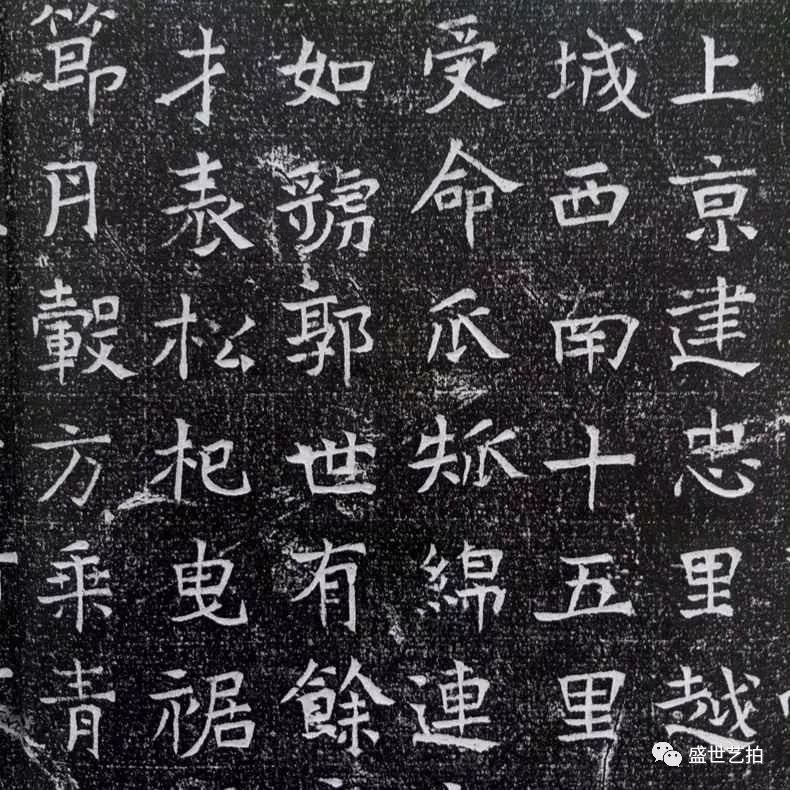 上京建忠里越
城西南十五里
受命瓜瓞綿連
如虢郭世有餘
才表松杞曳裾
節丹轂方乘青
盛世艺拍